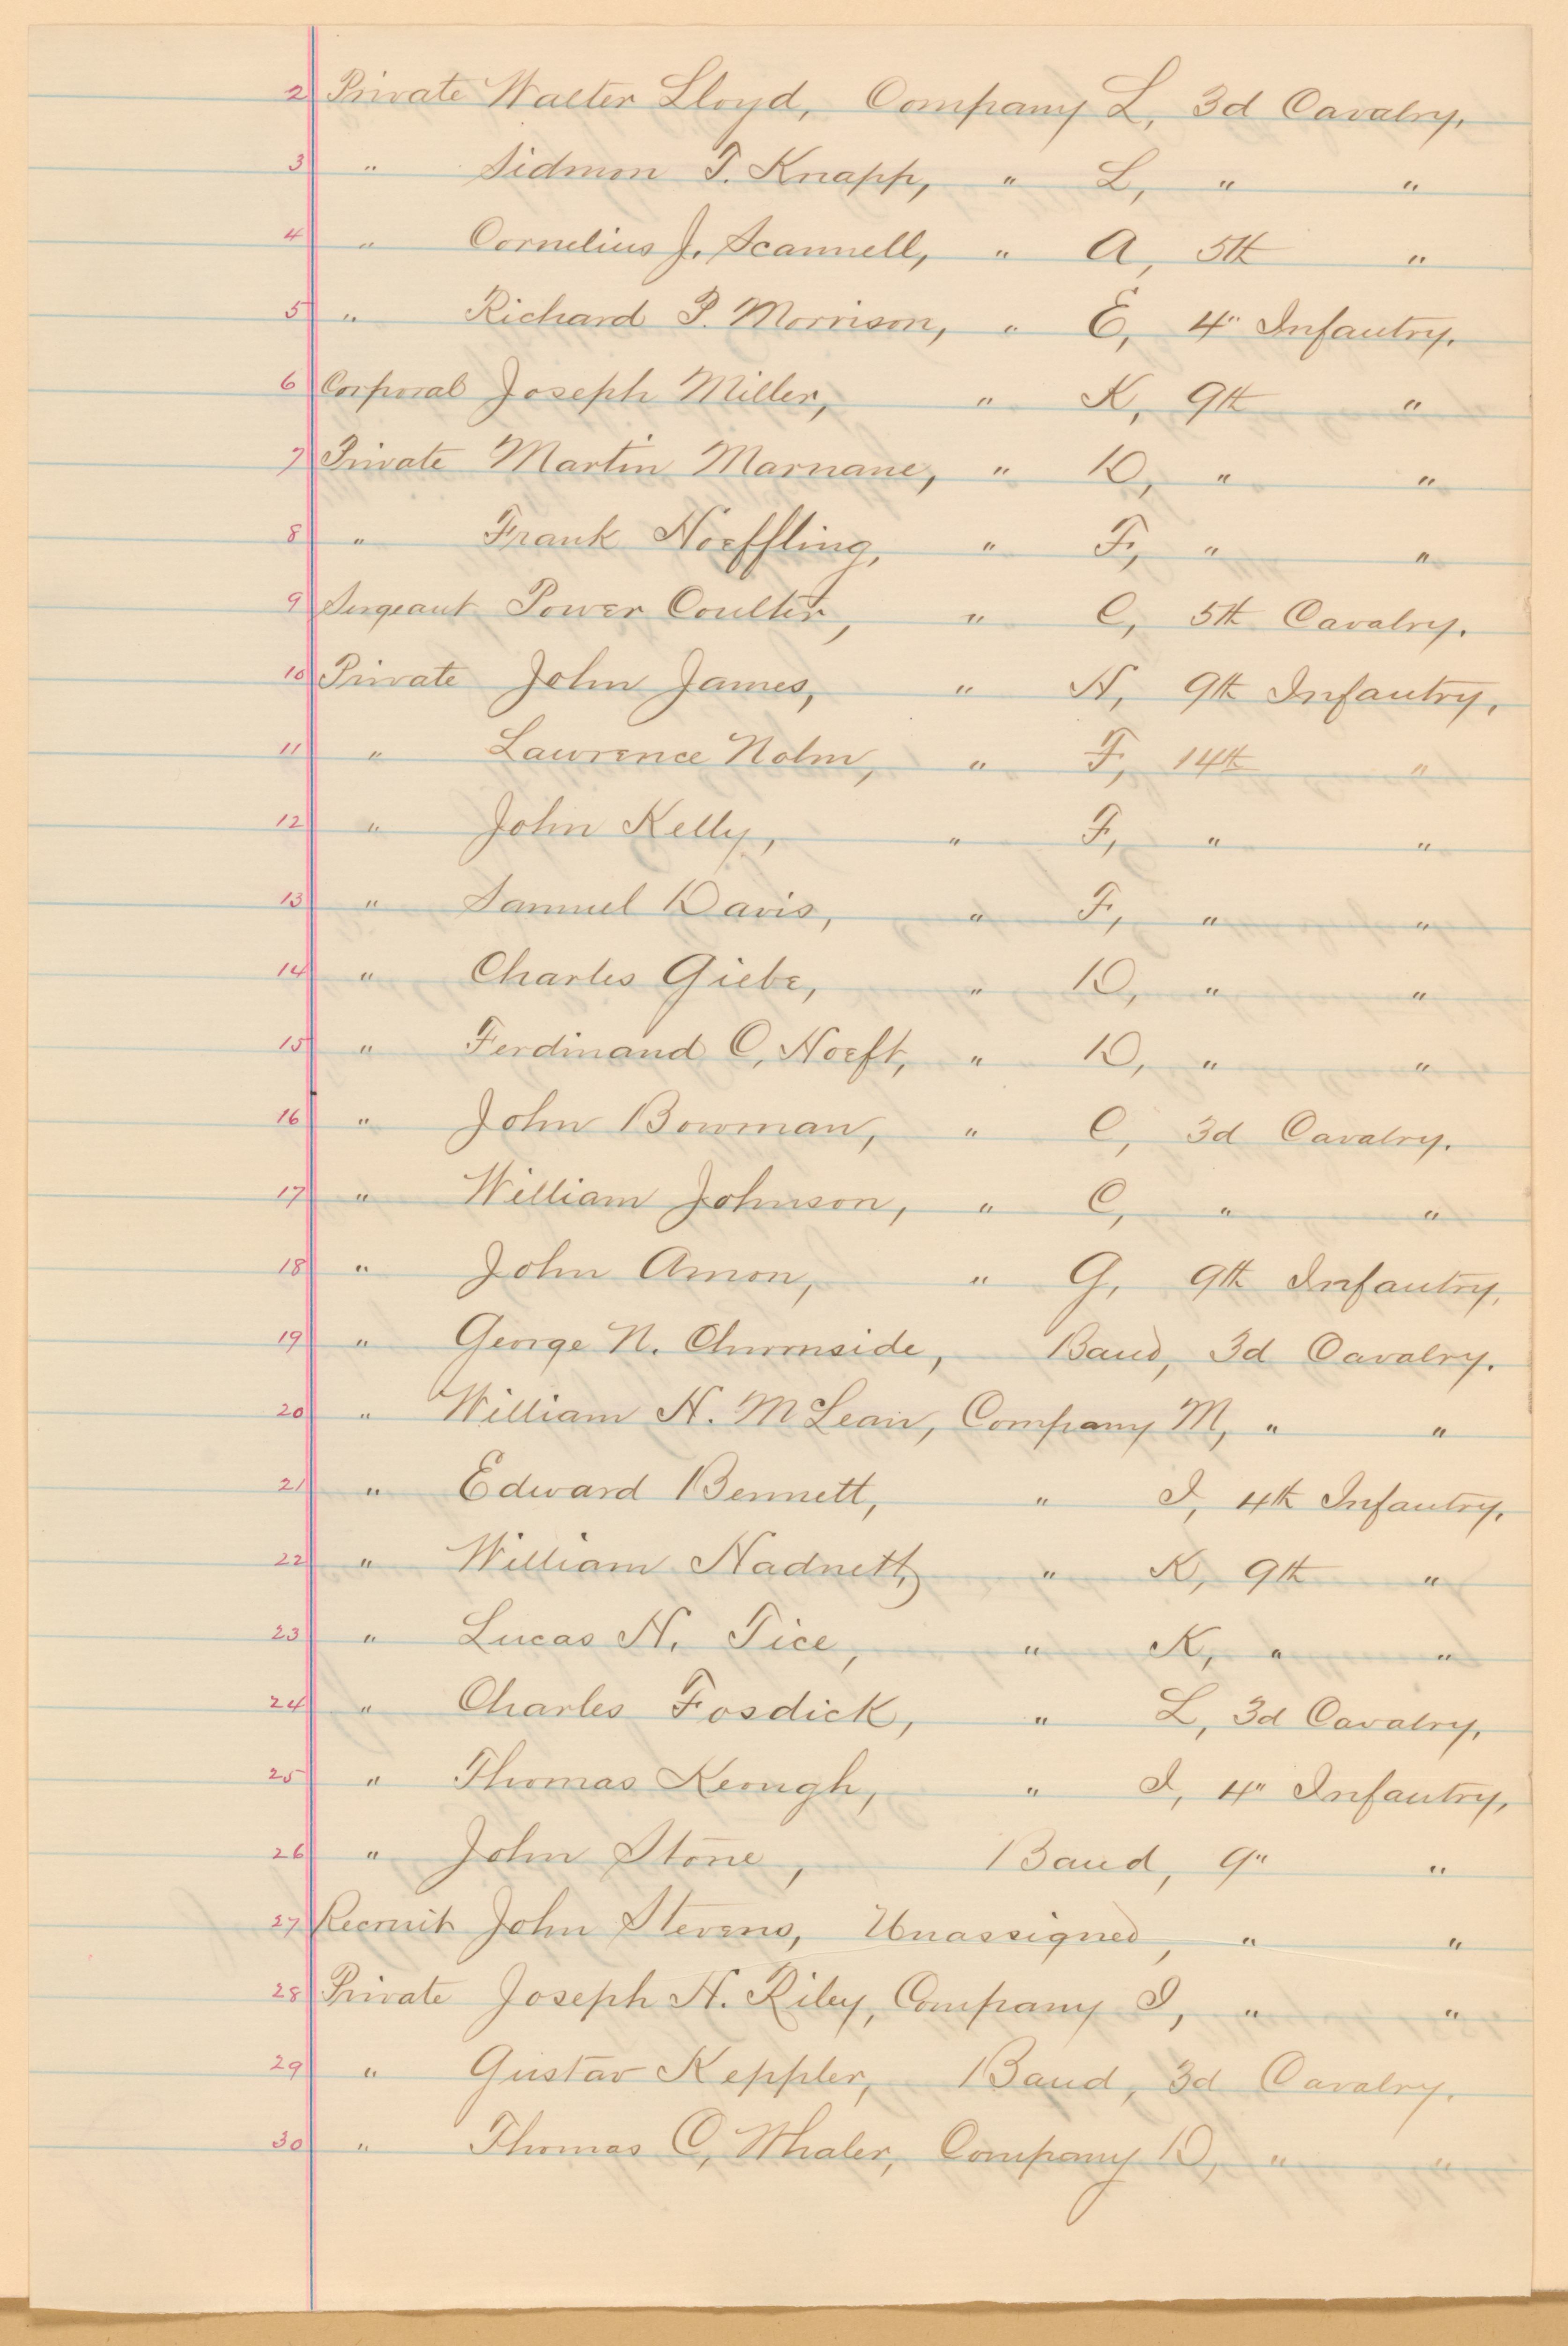 2 Private Walter Lloyd, Company L, 3d Cavalry,
3 " Sidmon T. Knapp, " L, " "
4 " Cornelius J. Scannell, " A, 5th "
5 " Richard P. Morrison, " E, 4" Infantry.
6 Corporal Joseph Miller, " K, 9th "
7 Private Martin Marnane, " D, " "
8 " Frank Hoeffling, " F, " "
9 Sergeant Power Coulter, " C, 5th Cavalry.
10 Private John James, " H, 9th Infantry,
11 " Lawrence Nolm, " F, 14th "
12 " John Kelly, " F, " "
13 " Samuel Davis, " F, " "
14 " Charles Giebe, " D, " "
15 " Ferdinand C, Hoeft, " D, " "
16 " John Bowman, " C, 3d Cavalry.
17 " William Johnson, " C, " "
18 " John Amon, " G, 9th Infantry,
19 " George N. Churnside, Band, 3d Cavalry.
20 " William H. McLean, Company M, " "
21 " Edward Bennett, " I, 4th Infantry,
22 " William Hadnett, " K, 9th "
23 " Lucas H. Tice, " K, " "
24 " Charles Fosdick, " L, 3d Cavalry,
25 " Thomas Keough, " I, 4" Infantry,
26 " John Stone, Band, 9" "
27 Recruit John Stevens, Unassigned, " "
28 Private Joseph H. Riley, Company I, " "
29 " Gustav Keppler, Band, 3d Cavalry.
30 " Thomas C, Whaler, Company D, " "